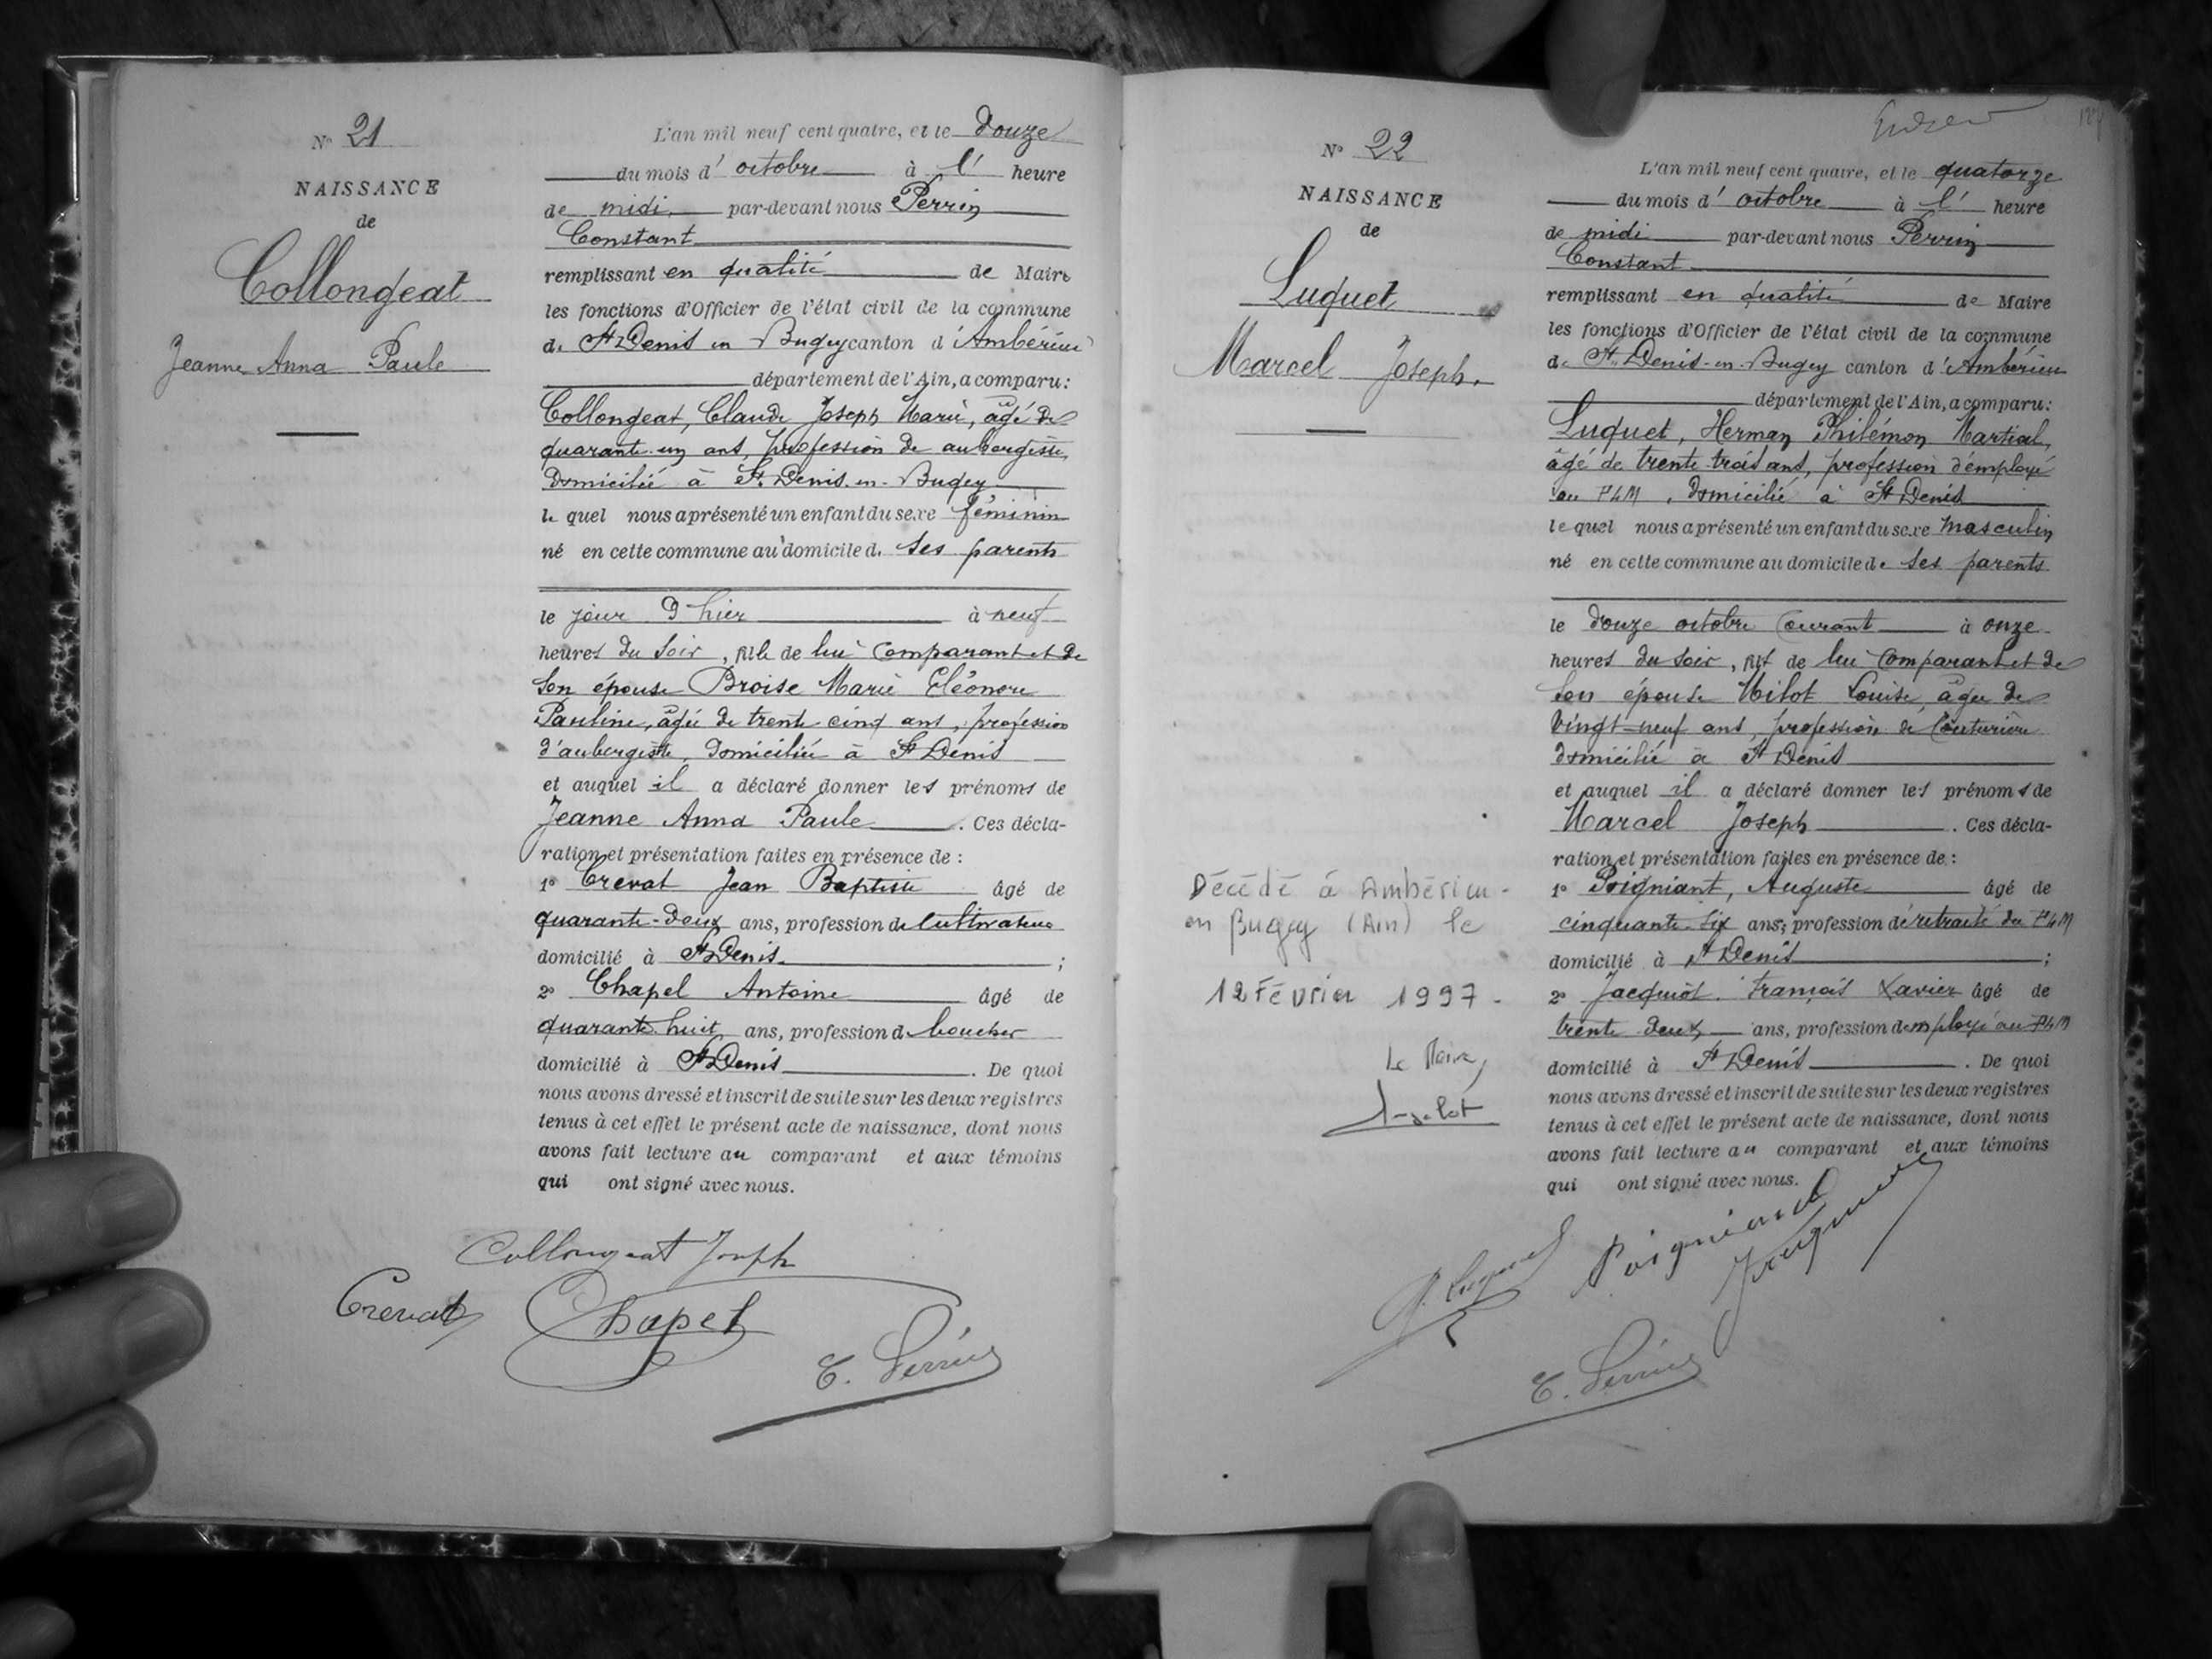 N° 21
NAISSANCE
de
Collongeat
Jeanne Anna Paule
L'an mil neuf cent quatre, et le douze
du mois d' octobre à l' heure
de midi, par-devant nous Perrin
Constant
remplissant en qualité de Maire
les fonctions d'Officier de l'état civil de la commune
de St Denis en Bugey canton d'Ambérieu
département de l'Ain, a comparu:
Collongeat, Claude Joseph Marie, âgé de
quarante-un ans, profession de aubergiste,
domicilié à St Denis-en-Bugey
le quel nous a présenté un enfant du sexe féminin
né en cette commune au domicile de ses parents
le jour d'hier à neuf
heures du soir, fille de lui comparant et de
son épouse Broise Marie Eléonore
Pauline, âgée de trente-cinq ans, profession
d'aubergiste, domiciliée à St Denis
et auquel il a déclaré donner les prénoms de
Jeanne Anna Paule. Ces décla-
ration et présentation faites en présence de :
1° Crevat Jean Baptiste âgé de
quarante-deux ans, profession de cultivateur
domicilié à St Denis ;
2° Chapel Antoine âgé de
quarante huit ans, profession de boucher
domicilié à St Denis. De quoi
nous avons dressé et inscrit de suite sur les deux registres
tenus à cet effet le présent acte de naissance, dont nous
avons fait lecture au comparant et aux témoins
qui ont signé avec nous.
Collongeat Joseph
Crevat Chapel
C. Perrin
N° 22
NAISSANCE
de
Luquet
Marcel Joseph.
Décédé à Ambérieu-
en Bugey (Ain) le
12 Février 1997-
Le Maire,
L'an mil neuf cent quatre, et le quatorze
du mois d' octobre à l' heure
de midi par-devant nous Perrin
Constant
remplissant en qualité de Maire
les fonctions d'Officier de l'état civil de la commune
de St Denis-en-Bugey canton d'Ambérieu
département de l'Ain, a comparu:
Luquet, Herman Philémon Martial,
âgé de trente-trois ans, profession d'employé
au PLM, domicilié à St Denis
le quel nous a présenté un enfant du sexe masculin
né en cette commune au domicile de ses parents
le douze octobre courant à onze
heures du soir, fils de lui comparant et de
son épouse Milot Louise, âgée de
vingt-neuf ans, profession de couturière
domicilié à St Denis
et auquel il a déclaré donner les prénoms de
Marcel Joseph. Ces décla-
ration et présentation faites en présence de :
1° Poigniant, Auguste âgé de
cinquante-six ans, profession de retraité du PLM
domicilié à St Denis ;
2° Jacquiot François Xavier âgé de
trente deux ans, profession d'employé au PLM
domicilié à St Denis. De quoi
nous avons dressé et inscrit de suite sur les deux registres
tenus à cet effet le présent acte de naissance, dont nous
avons fait lecture au comparant et aux témoins
qui ont signé avec nous.
Luquet Poigniand
C. Perrin